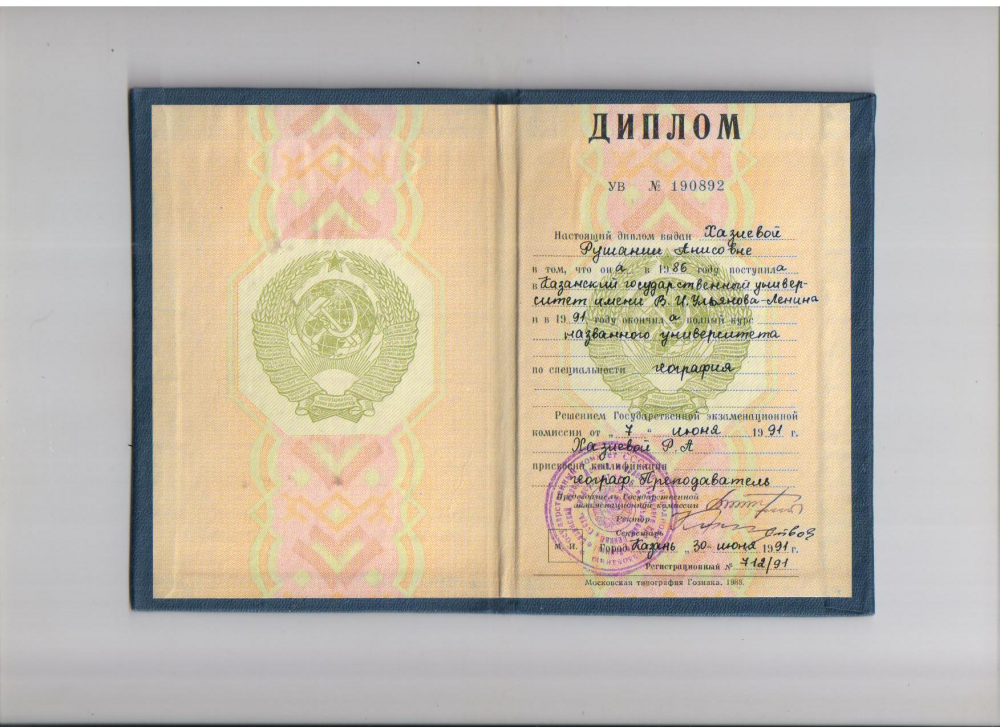 ДИПЛОМ
УВ № 190892
Настоящий диплом выдан Хазиевой
Рушании Анисовне
в том, что она в 1986 году поступила
в Казанский государственный универ-
ситет имени В. И. Ульянова-Ленина
и в 1991 году окончила полный курс
названного университета
по специальности география
Решением Государственной экзаменационной
комиссии от „7“ июня 1991 г.
Хазиевой Р. А
присвоена квалификация
географ. Преподаватель
Председатель Государственной
экзаменационной комиссии
Ректор
Секретарь
М. П. Город Казань „30“ июня 1991 г.
Регистрационный № 712/91
Московская типография Гознака. 1988.